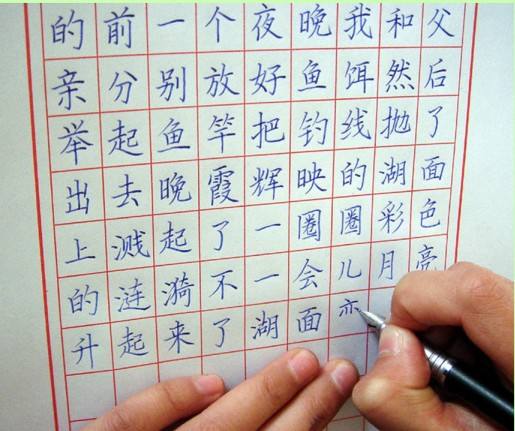 的前一个夜晚我和父
亲分别放好鱼饵然后
举起鱼竿把钓线抛了
出去晚霞辉映的湖面
上溅起了一圈圈彩色
的涟漪不一会儿月亮
升起来了湖面